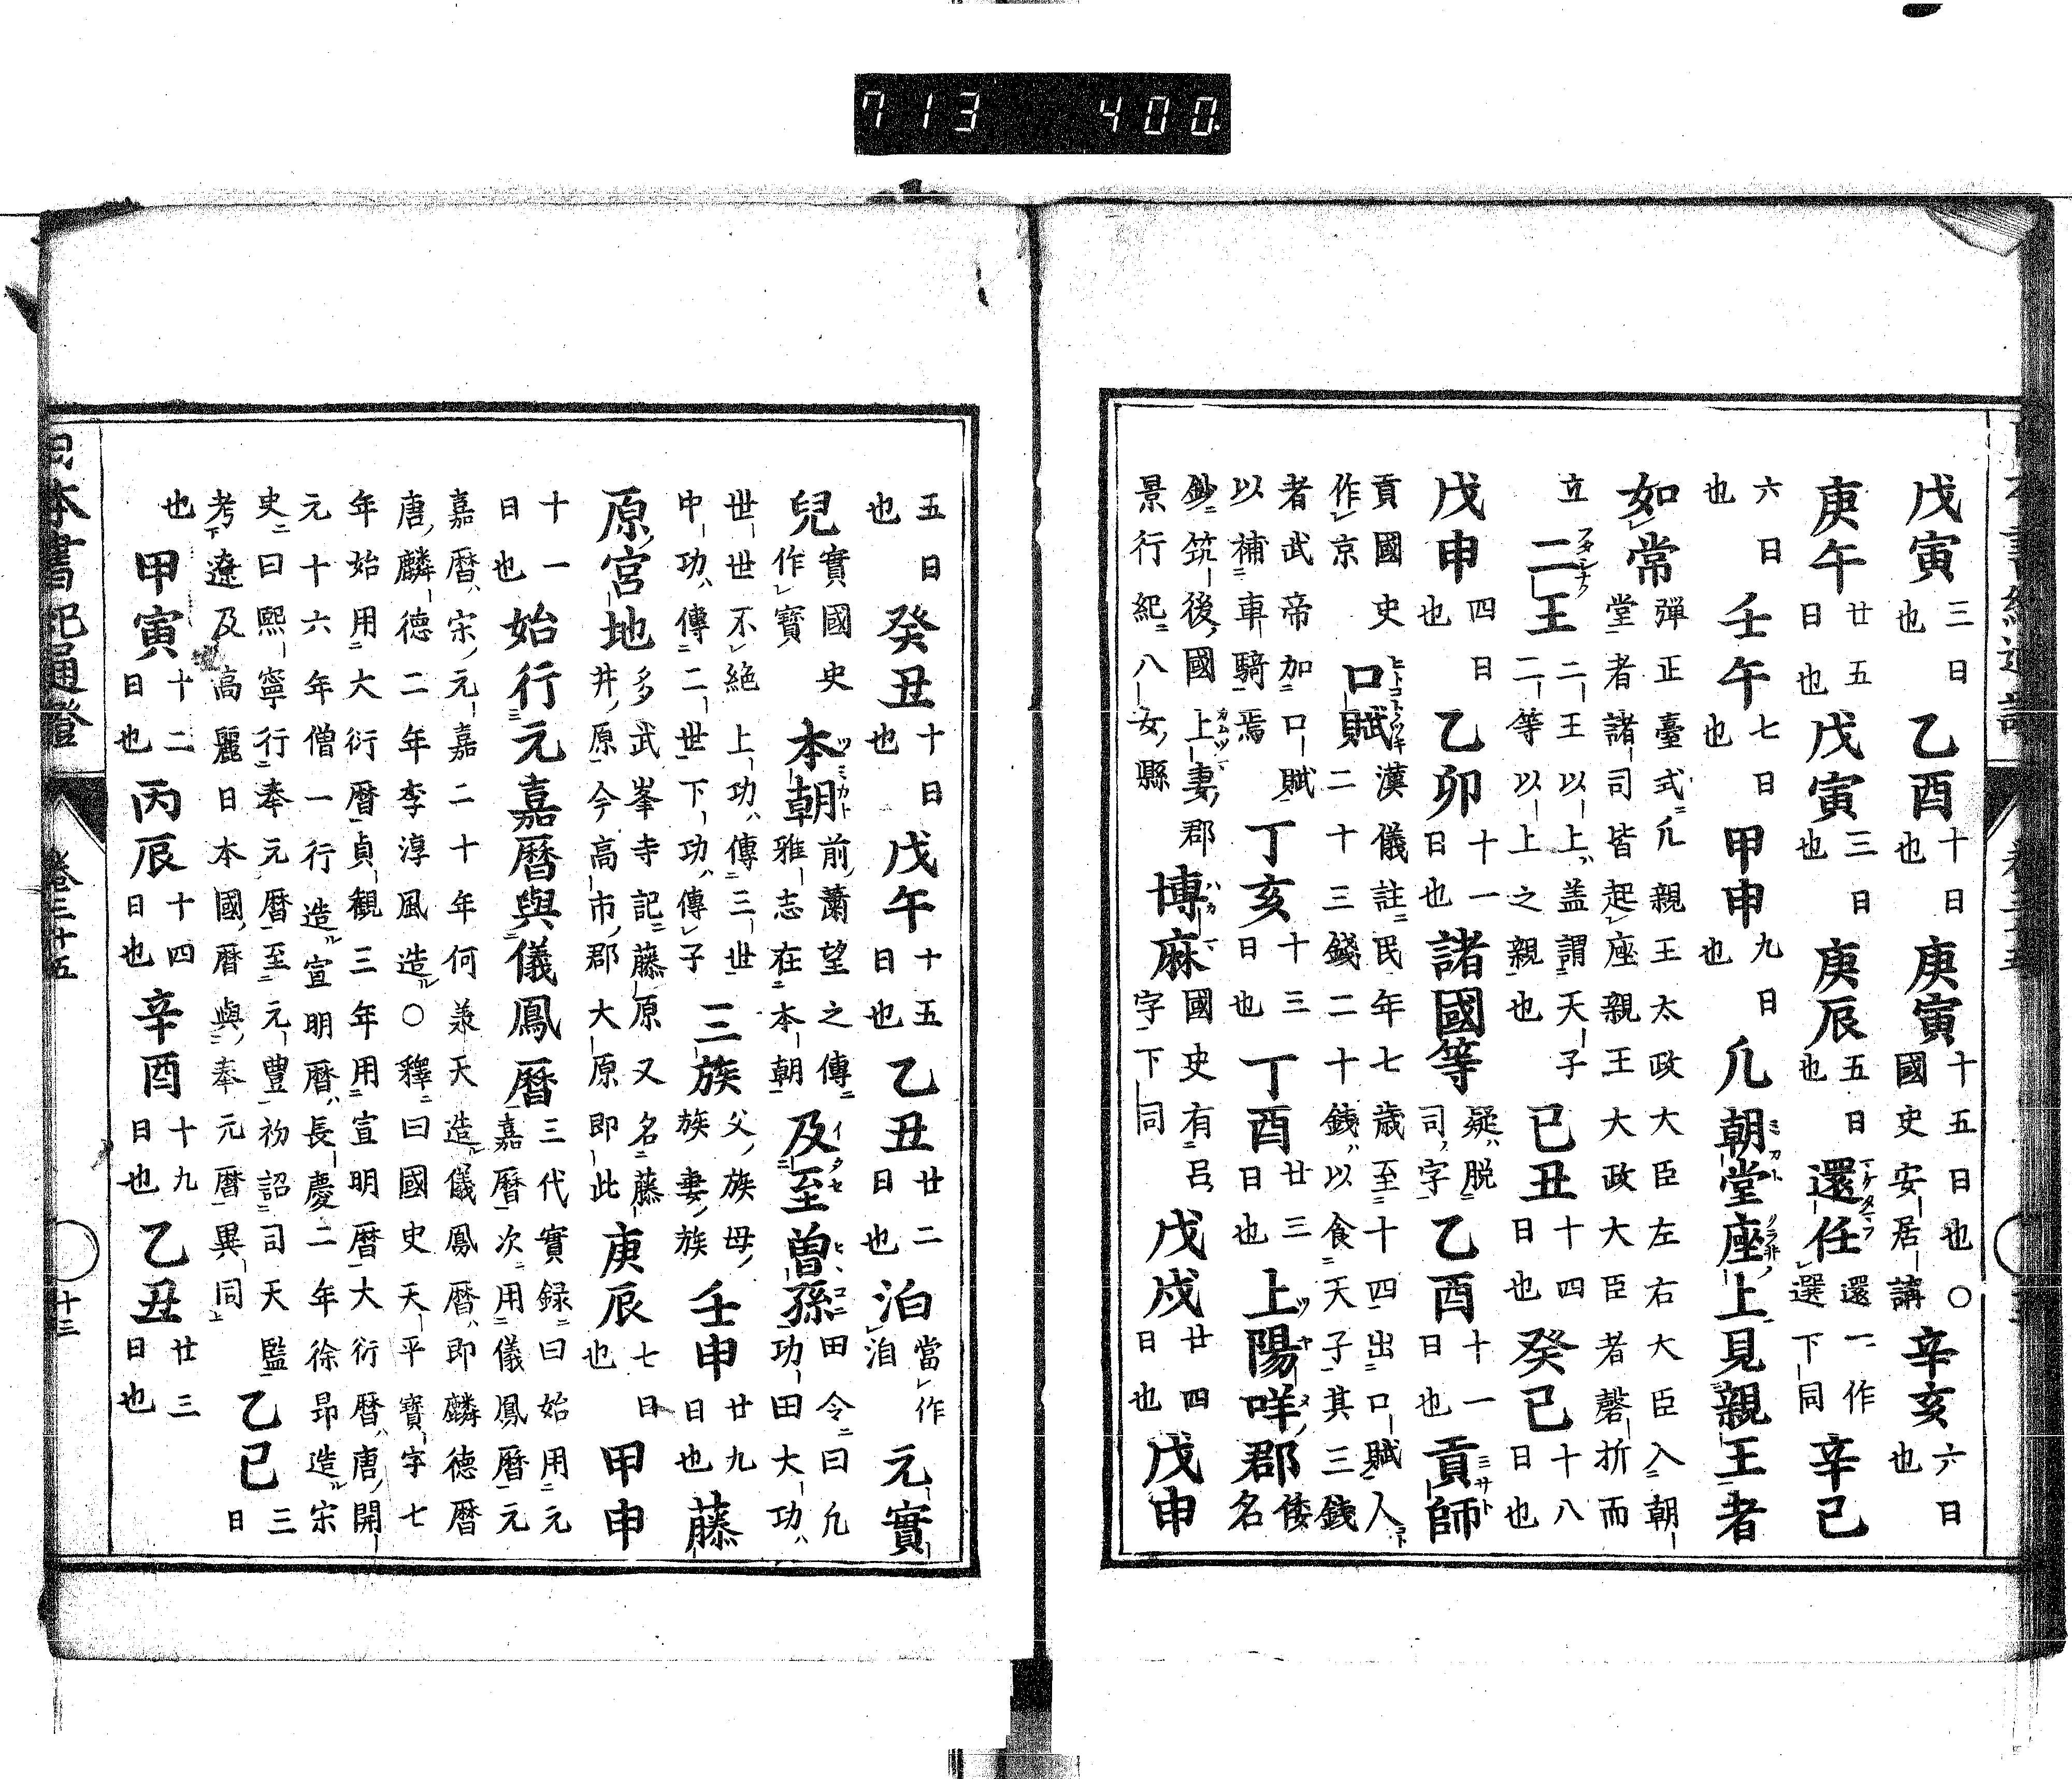 713 400.
戊寅 三日也 乙酉 十日也 庚寅 十五日也○國史安居講 辛亥 六日也
庚午 廿五日也 戊寅 三日也 庚辰 五日也 還任 還一作選下同 辛巳
六日也 壬午 七日也 甲申 九日也 凡朝堂座上見親王者
如常 彈正臺式凡親王太政大臣左右大臣入朝堂者諸司皆起座親王大政大臣者磬折而
立 二王 二王以上盖謂天子二等以上之親也 已丑 十四日也 癸已 十八日也
戊申 四日也 乙卯 十一日也 諸國等 疑脱司字 乙酉 十一日也 貢師
貢國史作京 口賦 漢儀註民年七歳至十四出口賦人二十三錢二十錢以食天子其三錢
者武帝加口賦以補車騎焉 丁亥 十三日也 丁酉 廿三日也 上陽咩郡 倭名
鈔筑後國上妻郡景行紀八女縣 博麻 國史有呂字下同 戊戍 廿四日也 戊申
五日也 癸丑 十日也 戊午 十五日也 乙丑 廿二日也 泊 當作洎 元實
兒 實國史作寳 本朝 前蕭望之傳雅志在本朝 及至曽孫 田令曰凡功田大功
世世不絶上功傳三世中功傳二世下功傳子 三族 父族母族妻族 壬申 廿九日也 藤
原宮地 多武峯寺記藤原又名藤井原今高市郡大原即此 庚辰 七日也 甲申
十一日也 始行元嘉曆與儀鳳曆 三代實録曰始用元嘉曆次用儀鳳曆元
嘉曆宋元嘉二十年何承天造儀鳳曆即麟德曆唐麟德二年李淳風造○釋曰國史天平寳字七
年始用大衍曆貞觀三年用宣明曆大衍曆唐開元十六年僧一行造宣明曆長慶二年徐昂造宋
史曰熙寧行奉元曆至元豊初詔司天監考遼及高麗日本國曆與奉元曆異同 乙已 三日
也 甲寅 十二日也 丙辰 十四日也 辛酉 十九日也 乙丑 廿三日也
日本書紀通證 卷三十五 十三